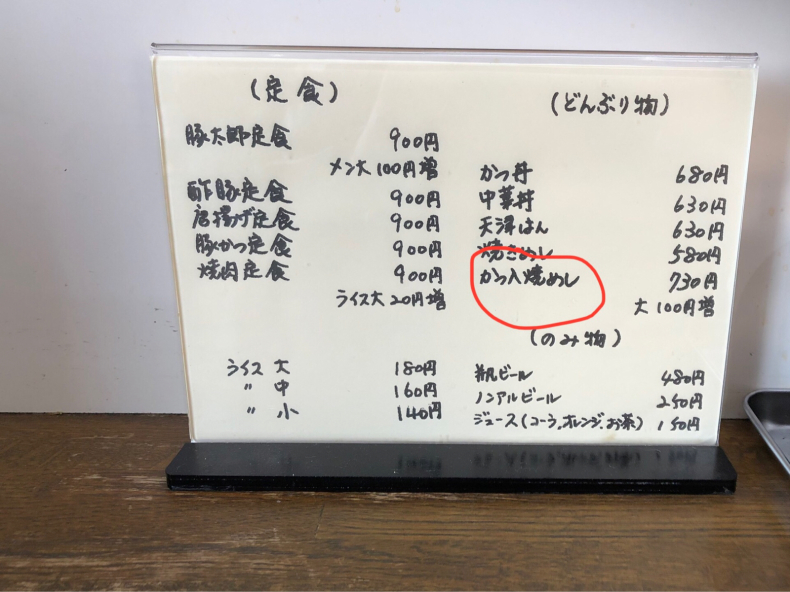 (定食)
豚太郎定食 900円
メン大100円増
酢豚定食 900円
唐揚げ定食 900円
豚かつ定食 900円
焼肉定食 900円
ライス大20円増
ライス 大 180円
〃 中 160円
〃 小 140円
(どんぶり物)
かつ丼 680円
中華丼 630円
天津はん 630円
焼きめし 580円
かつ入焼めし 730円
大100円増
(のみ物)
瓶ビール 480円
ノンアルビール 250円
ジュース(コーラ,オレンジ,お茶) 150円